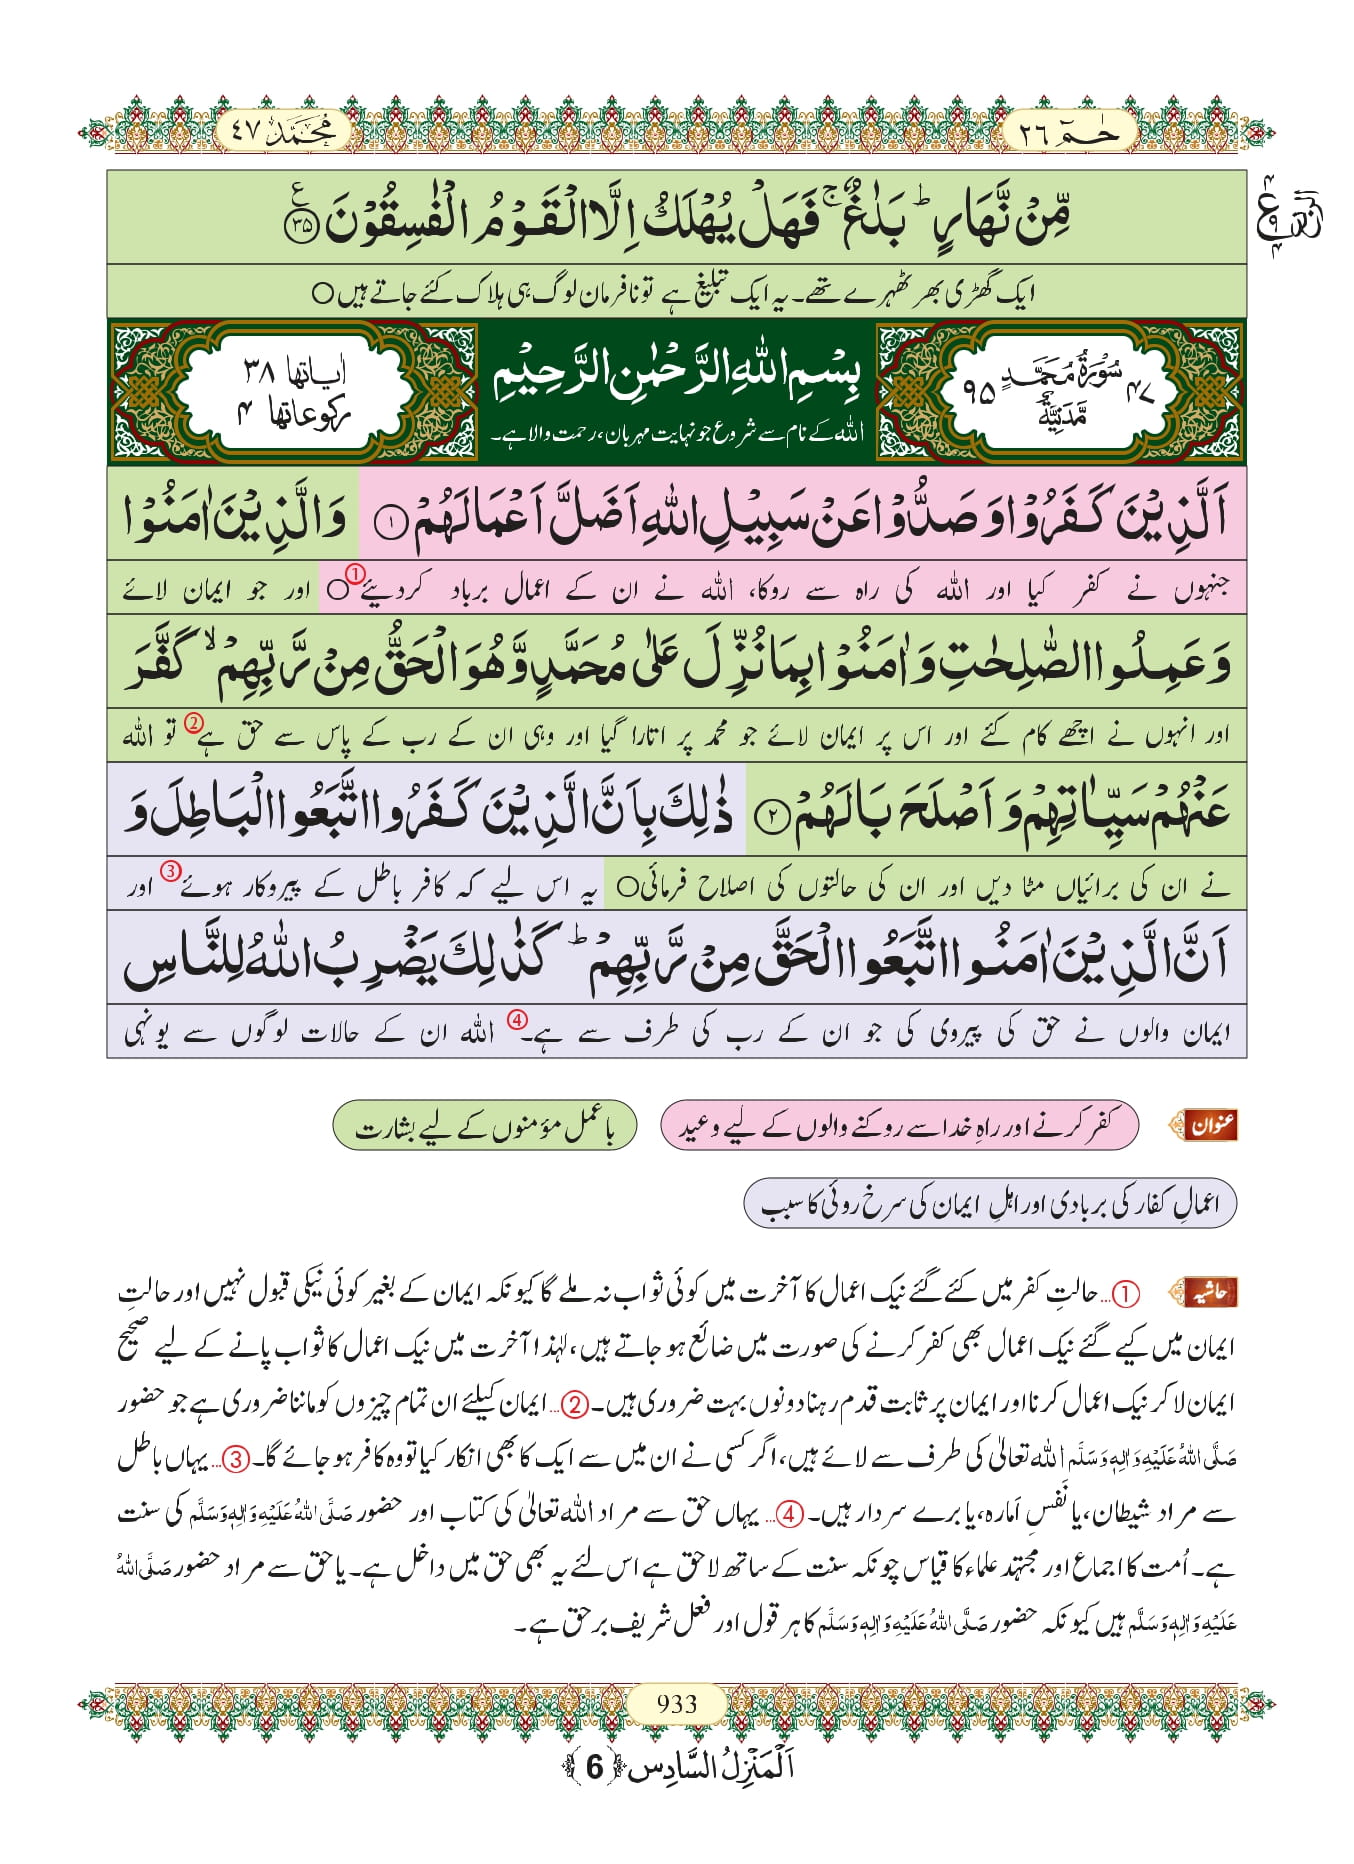 حٰمٓ ٢٦
مُحَمَّد ٤٧
مِّنْ نَّهَارٍ ؕ بَلٰغٌ ۚ فَهَلْ یُهْلَكُ اِلَّا الْقَوْمُ الْفٰسِقُوْنَ ۳۵ ع
ایک گھڑی بھر ٹھہرے تھے۔ یہ ایک تبلیغ ہے تو نافرمان لوگ ہی ہلاک کئے جاتے ہیں ○
۴۷ سُوْرَةُ مُحَمَّدٍ ۹۵
مَّدَنِیَّةٌ
بِسْمِ اللّٰهِ الرَّحْمٰنِ الرَّحِیْمِ
اللّٰہ کے نام سے شروع جو نہایت مہربان، رحمت والا ہے۔
اٰیاتھا ۳۸
رکوعاتھا ۴
اَلَّذِیْنَ كَفَرُوْا وَ صَدُّوْا عَنْ سَبِیْلِ اللّٰهِ اَضَلَّ اَعْمَالَهُمْ ۱ وَ الَّذِیْنَ اٰمَنُوْا
جنہوں نے کفر کیا اور اللّٰہ کی راہ سے روکا، اللّٰہ نے ان کے اعمال برباد کردیئے ① ○ اور جو ایمان لائے
وَ عَمِلُوا الصّٰلِحٰتِ وَ اٰمَنُوْا بِمَا نُزِّلَ عَلٰى مُحَمَّدٍ وَّ هُوَ الْحَقُّ مِنْ رَّبِّهِمْ ۙ كَفَّرَ
اور انہوں نے اچھے کام کئے اور اس پر ایمان لائے جو محمد پر اتارا گیا اور وہی ان کے رب کے پاس سے حق ہے ② تو اللّٰہ
عَنْهُمْ سَیِّاٰتِهِمْ وَ اَصْلَحَ بَالَهُمْ ۲ ذٰلِكَ بِاَنَّ الَّذِیْنَ كَفَرُوا اتَّبَعُوا الْبَاطِلَ وَ
نے ان کی برائیاں مٹا دیں اور ان کی حالتوں کی اصلاح فرمائی ○ یہ اس لیے کہ کافر باطل کے پیروکار ہوئے ③ اور
اَنَّ الَّذِیْنَ اٰمَنُوا اتَّبَعُوا الْحَقَّ مِنْ رَّبِّهِمْ ؕ كَذٰلِكَ یَضْرِبُ اللّٰهُ لِلنَّاسِ
ایمان والوں نے حق کی پیروی کی جو ان کے رب کی طرف سے ہے۔ ④ اللّٰہ ان کے حالات لوگوں سے یونہی
عنوان کفر کرنے اور راہِ خدا سے روکنے والوں کے لیے وعید باعمل مؤمنوں کے لیے بشارت
اعمالِ کفار کی بربادی اور اہلِ ایمان کی سرخ روئی کا سبب
حاشیہ ①... حالتِ کفر میں کئے گئے نیک اعمال کا آخرت میں کوئی ثواب نہ ملے گا کیونکہ ایمان کے بغیر کوئی نیکی قبول نہیں اور حالتِ
ایمان میں کیے گئے نیک اعمال بھی کفر کرنے کی صورت میں ضائع ہو جاتے ہیں، لہٰذا آخرت میں نیک اعمال کا ثواب پانے کے لیے صحیح
ایمان لا کر نیک اعمال کرنا اور ایمان پر ثابت قدم رہنا دونوں بہت ضروری ہیں۔ ②... ایمان کیلئے ان تمام چیزوں کو ماننا ضروری ہے جو حضور
صَلَّی اللّٰهُ عَلَیْهِ وَاٰلِهٖ وَسَلَّم اللّٰه تعالیٰ کی طرف سے لائے ہیں، اگر کسی نے ان میں سے ایک کا بھی انکار کیا تو وہ کافر ہو جائے گا۔ ③... یہاں باطل
سے مراد شیطان، یا نَفسِ اَمارہ، یا برے سردار ہیں۔ ④... یہاں حق سے مراد اللّٰه تعالیٰ کی کتاب اور حضور صَلَّی اللّٰهُ عَلَیْهِ وَاٰلِهٖ وَسَلَّم کی سنت
ہے۔ اُمت کا اجماع اور مجتہد علماء کا قیاس چونکہ سنت کے ساتھ لاحق ہے اس لئے یہ بھی حق میں داخل ہے۔ یا حق سے مراد حضور صَلَّی اللّٰهُ
عَلَیْهِ وَاٰلِهٖ وَسَلَّم ہیں کیونکہ حضور صَلَّی اللّٰهُ عَلَیْهِ وَاٰلِهٖ وَسَلَّم کا ہر قول اور فعل شریف برحق ہے۔
933
اَلْمَنْزِلُ السَّادِس ﴿6﴾